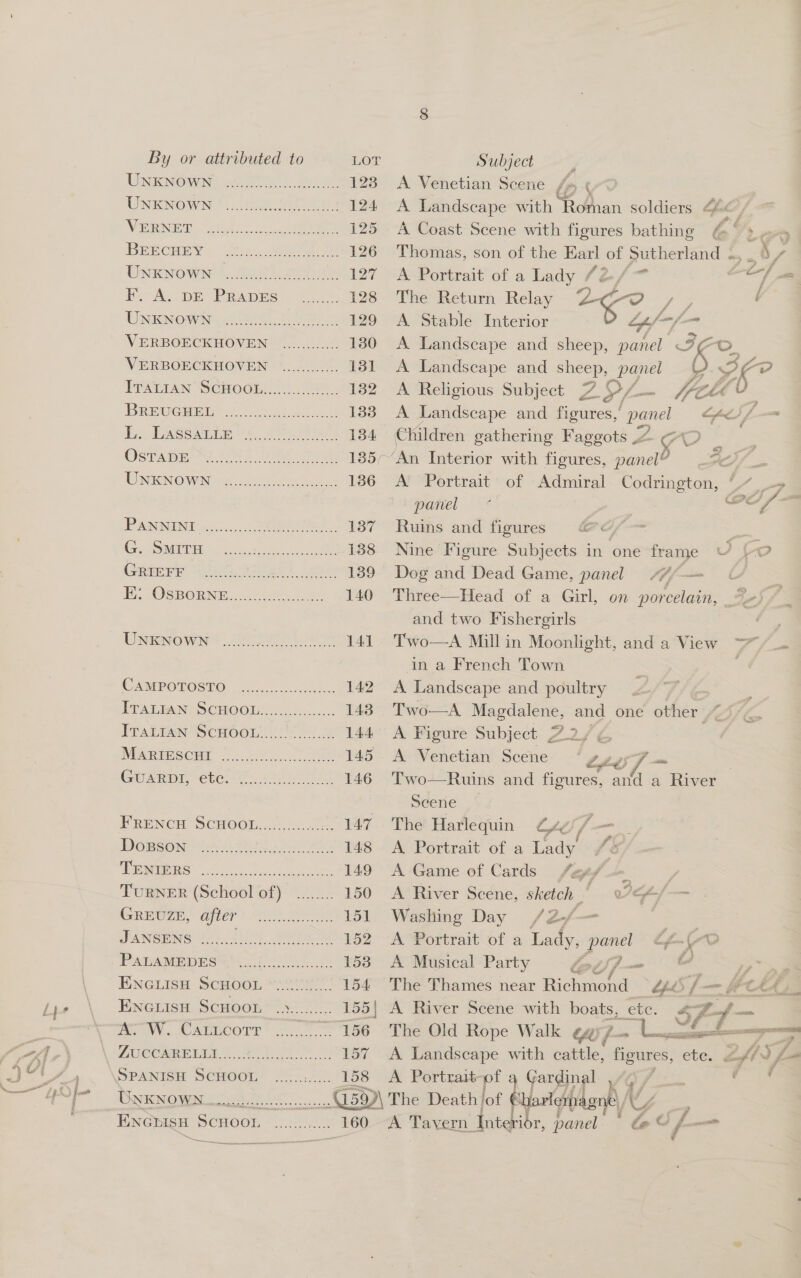 8
By or attributed to LOT Subject
UNKNOWN ........ 123 A Venetian Scene
UNKNOWN ........ 124 A Landscape with Roman soldiers
VERNET ........ 125 A Coast Scene with figures bathing
BEECHEY ........ 126 Thomas, son of the Earl of Sutherland
UNKNOWN ........ 127 A Portrait of a Lady
F. A. DE PRADES ........ 128 The Return Relay
UNKNOWN ........ 129 A Stable Interior
VERBOECKHOVEN ........ 130 A Landscape and sheep, panel
VERBOECKHOVEN ........ 131 A Landscape and sheep, panel
ITALIAN SCHOOL ........ 132 A Religious Subject
BREUGHEL ........ 133 A Landscape and figures, panel
L. LASSALLE ........ 134 Children gathering Faggots
OSTADE ........ 135 An Interior with figures, panel
UNKNOWN ........ 136 A Portrait of Admiral Codrington,
panel
PANNINI ........ 137 Ruins and figures
G. SMITH ........ 138 Nine Figure Subjects in one frame
GRIEFF ........ 139 Dog and Dead Game, panel
E. OSBORNE ........ 140 Three—Head of a Girl, on porcelain,
and two Fishergirls
UNKNOWN ........ 141 Two—A Mill in Moonlight, and a View
in a French Town
CAMPOTOSTO ........ 142 A Landscape and poultry
ITALIAN SCHOOL ........ 143 Two—A Magdalene, and one other
ITALIAN SCHOOL ........ 144 A Figure Subject
MARIESCHI ........ 145 A Venetian Scene
GUARDI, etc. ........ 146 Two—Ruins and figures, and a River
Scene
FRENCH SCHOOL ........ 147 The Harlequin
DOBSON ........ 148 A Portrait of a Lady
TENIERS ........ 149 A Game of Cards
TURNER (School of) ........ 150 A River Scene, sketch
GREUZE, after ........ 151 Washing Day
JANSENS ........ 152 A Portrait of a Lady, panel
PALAMEDES ........ 153 A Musical Party
ENGLISH SCHOOL ........ 154 The Thames near Richmond
ENGLISH SCHOOL ........ 155 A River Scene with boats, etc.
A. W. CALLCOTT ........ 156 The Old Rope Walk
ZUCCARELLI ........ 157 A Landscape with cattle, figures, etc.
SPANISH SCHOOL ........ 158 A Portrait of a Cardinal
UNKNOWN ........ 159 The Death of Charlemagne
ENGLISH SCHOOL ........ 160 A Tavern Interior, panel